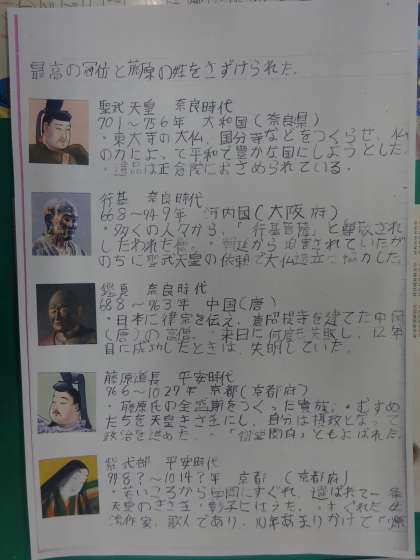 最高の冠位と藤原の姓をさずけられた。
聖武天皇 奈良時代
701〜756年 大和国(奈良県)
・東大寺の大仏、国分寺などをつくらせ、仏
の力によって平和で豊かな国にしようとした
・遺品は正倉院におさめられている。
行基 奈良時代
668〜749年 河内国(大阪府)
・多くの人々から、「行基菩薩」と
したわれた僧。朝廷から迫害されていたが
のちに聖武天皇の依頼で大仏造立に協力した。
鑑真 奈良時代
688〜763年 中国(唐)
・日本に律宗を伝え、唐招提寺を建てた中国
(唐)の高僧。来日に何度も失敗し、12年
目に成功したときは、失明していた。
藤原道長 平安時代
966〜1027年 京都(京都府)
・藤原氏の全盛期をつくった貴族。・むすめ
たちを天皇のきさきにし、自分は摂政となって
政治を進めた。「御堂関白」ともよばれた。
紫式部 平安時代
978?〜1014?年 京都 (京都府)
・若いころから学問にすぐれ、選ばれて一条
天皇のきさき・彰子につかえた。すぐれた女
流作家、歌人であり、10年あまりかけて「源